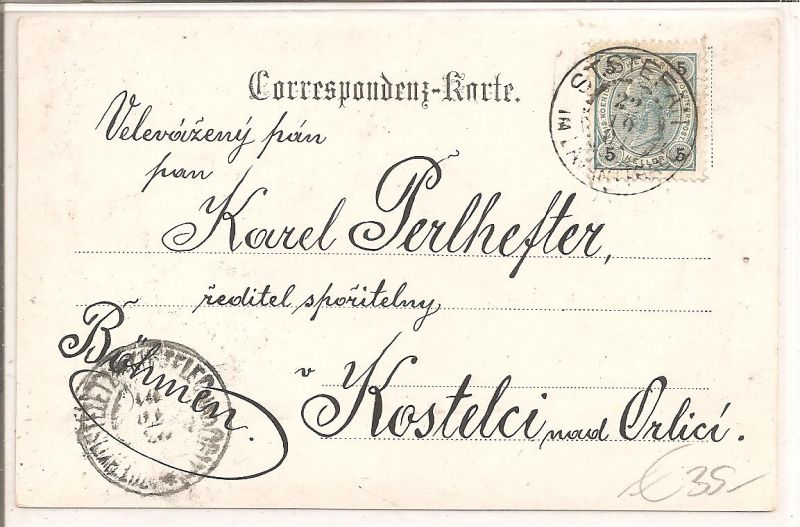 Correspondenz-Karte.
5 5
5 5
HELLER
ST. STEFAN
IM
Velevážený pán
pan
Karel Perlhefter,
ředitel spořitelny
Böhmen.
v Kostelci nad Orlicí.
€ 35-